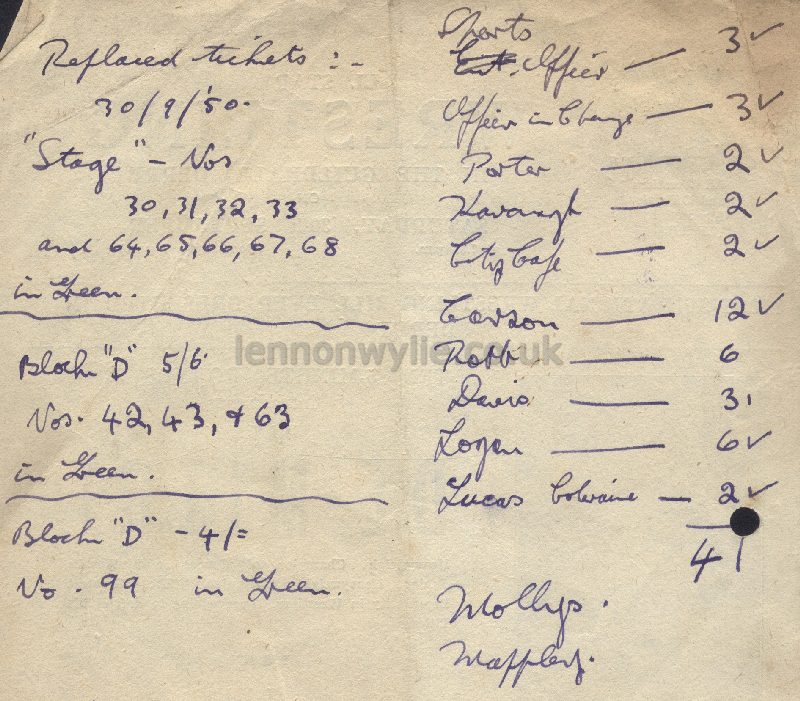 Replaced tickets :-
30/9/50.
"Stage" - Nos
30, 31, 32, 33
and 64, 65, 66, 67, 68
in Green.
Block "D" 5/6
Nos. 42, 43, & 63
in Green.
Block "D" - 4/=
No. 99 in Green.
Sports
Ent. Officer — 3 ✓
Officer in Charge — 3 ✓
Porter — 2 ✓
Kavanagh — 2 ✓
City Cafe — 2 ✓
Carson — 12 ✓
Robb — 6
Davis — 3
Logan — 6 ✓
Lucas Coleraine — 2 ✓
41
Mollys.
lennonwylie.co.uk